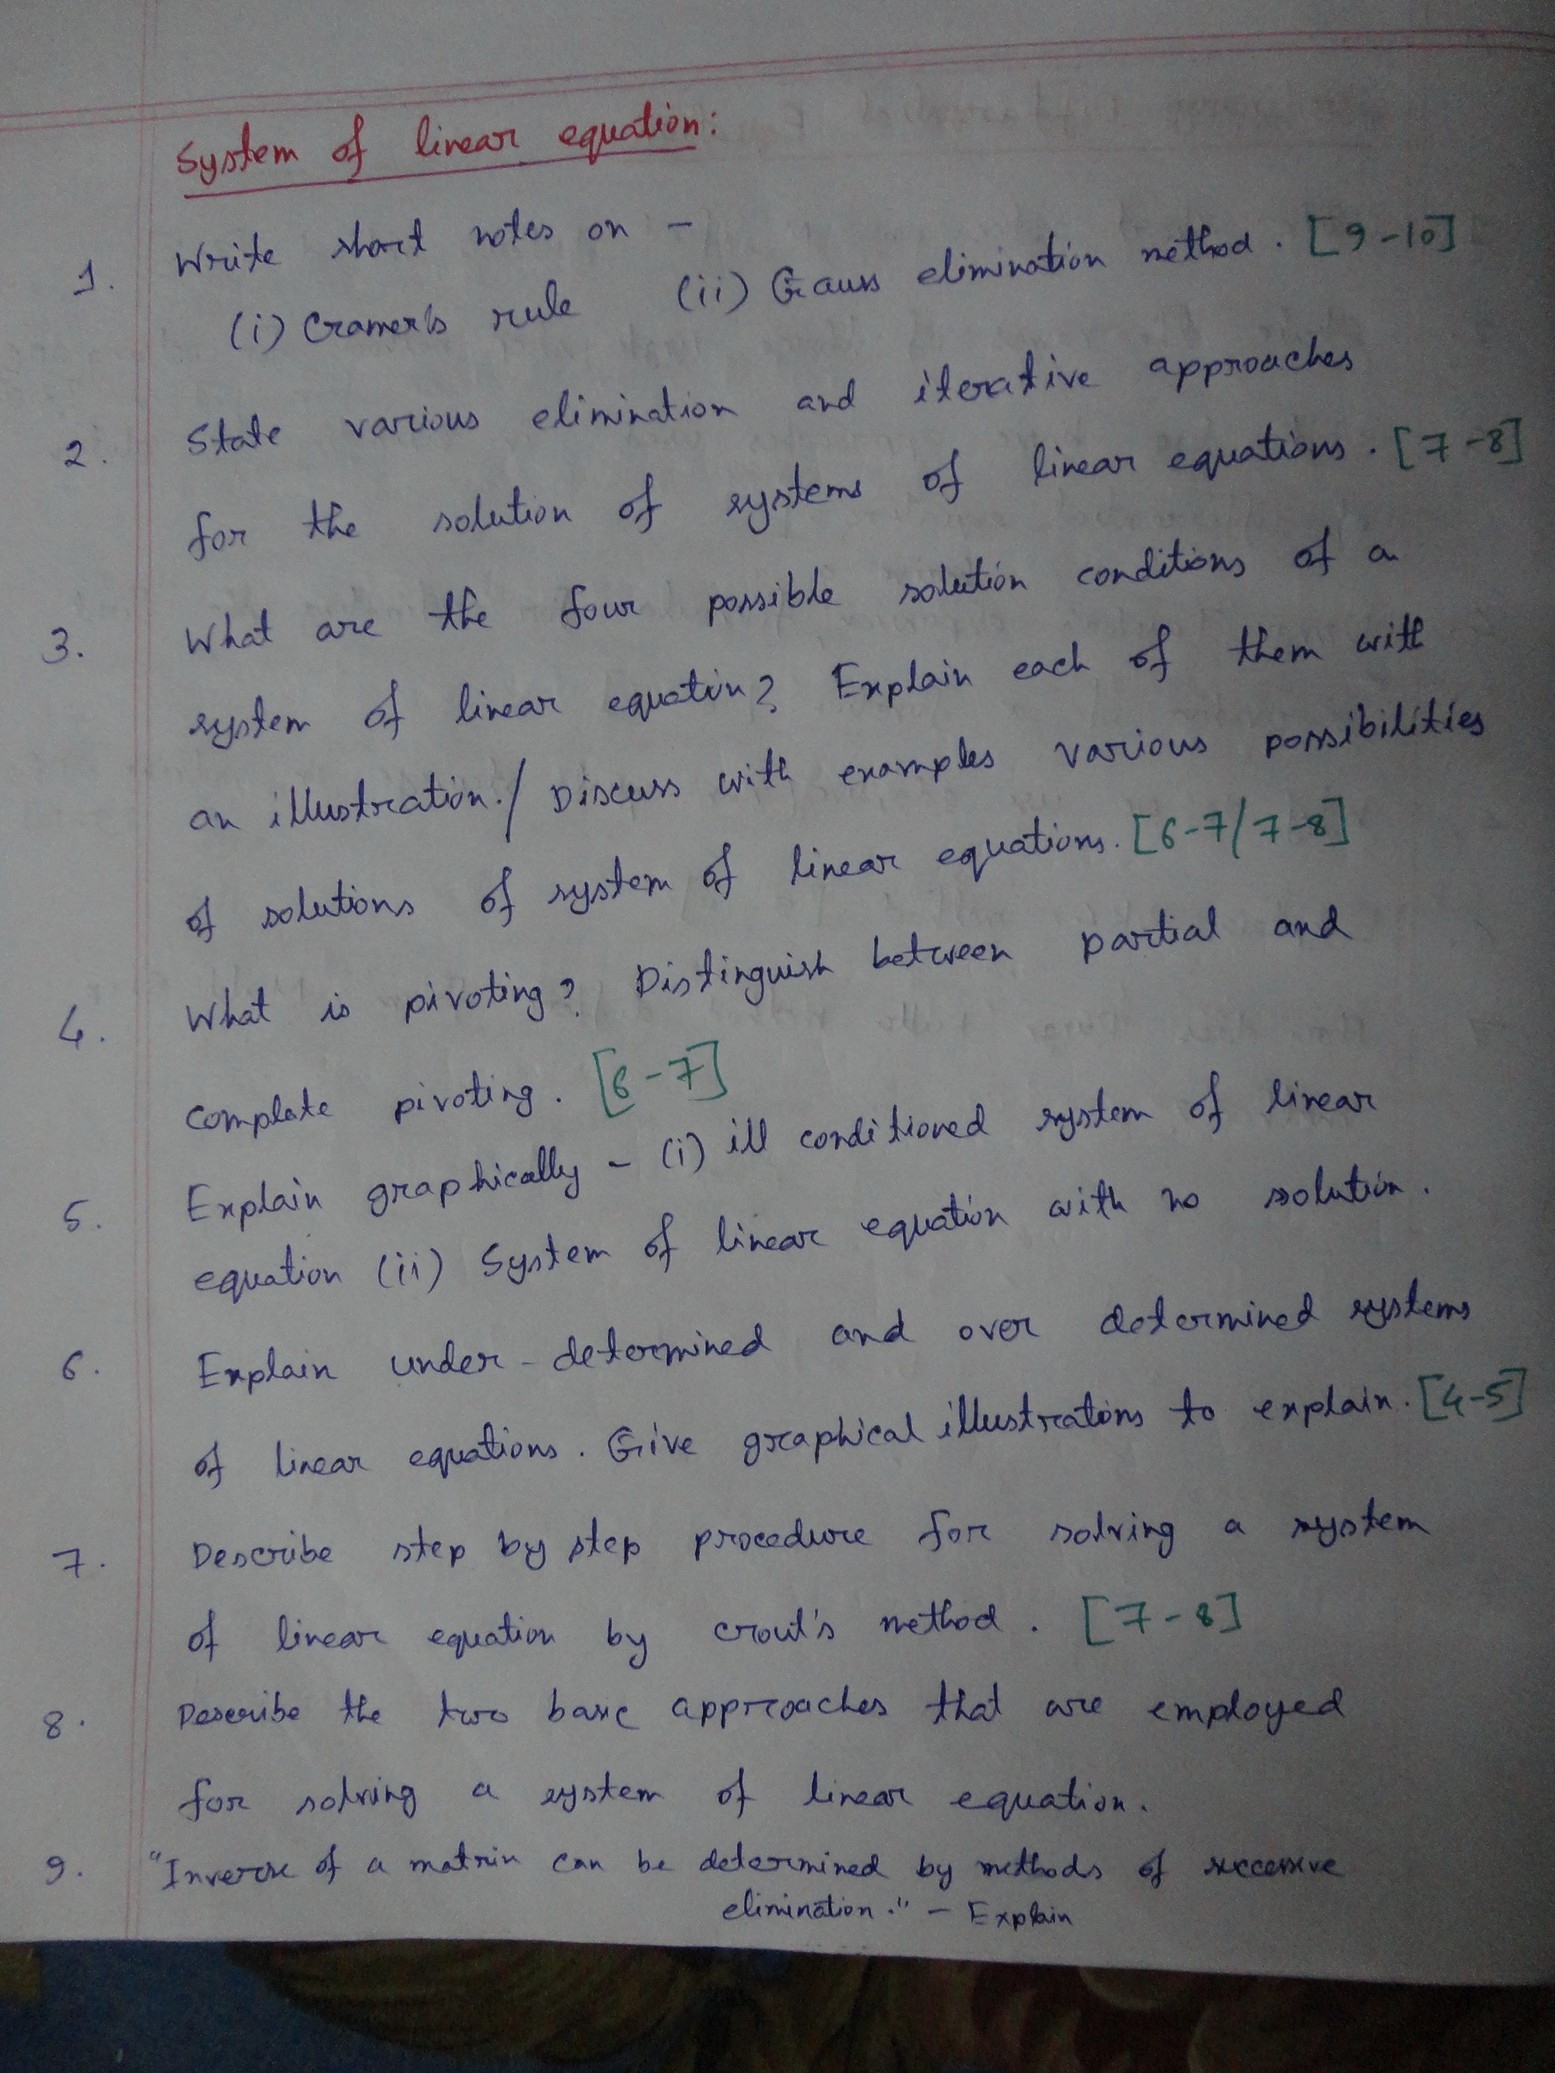 System of linear equation:
1. Write short notes on -
(i) Cramer's rule (ii) Gauss elimination method. [9-10]
2. State various elimination and iterative approaches
for the solution of systems of linear equations. [7-8]
3. What are the four possible solution conditions of a
system of linear equation? Explain each of them with
an illustration./ Discuss with examples various possibilities
of solutions of system of linear equations. [6-7/7-8]
4. What is pivoting? Distinguish between partial and
complate pivoting. [6-7]
5. Explain graphically - (i) ill conditioned system of linear
equation (ii) System of linear equation with no solution.
6. Explain under-determined and over determined systems
of linear equations. Give graphical illustrations to explain. [4-5]
7. Describe step by step procedure for solving a system
of linear equation by crout's method. [7-8]
8. Describe the two basic approaches that are employed
for solving a system of linear equation.
9. "Inverse of a matrix can be determined by methods of successive
elimination." - Explain